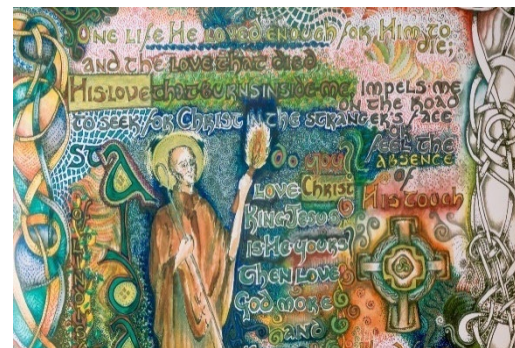 One life He loved enough for Him to
die;
and the love that died
His love that burns inside me impels me
on the road
to seek for Christ in the stranger's face
or
feel the
absence
of
His touch
Do you
love Christ
King Jesus
is He yours
then love
God more
and